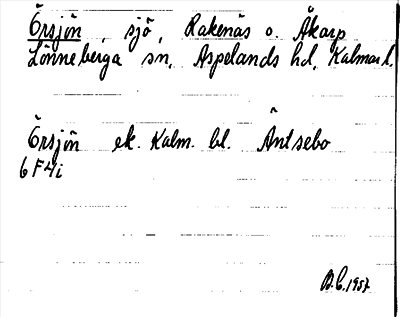 Örsjön, sjö, Rakenäs o. Åkarp
Lönneberga sn, Aspelands hd, Kalmar l.
Örsjön ek. Kalm. bl. Äntsebo
6 F 4i
B.C. 1957